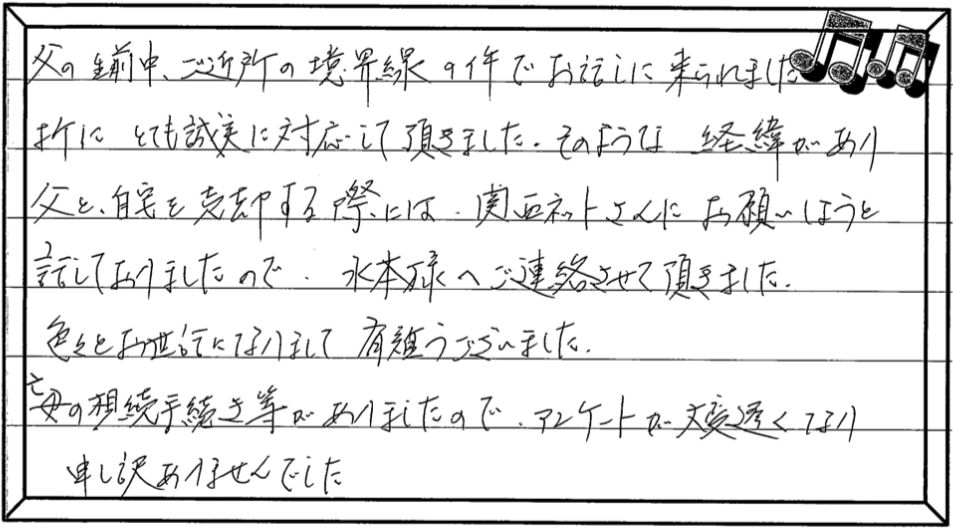 父の生前中、ご近所の境界線の件でお話しに来られました
折に とても誠実に対応して頂きました。そのような 経緯があり
父と、自宅を売却する際には、関西ネットさんにお願いしようと
話しておりましたので、水本様へご連絡させて頂きました。
色々とお世話になりまして 有難うございました。
亡母の相続手続き等がありましたので、アンケートが大変遅くなり
申し訳ありませんでした